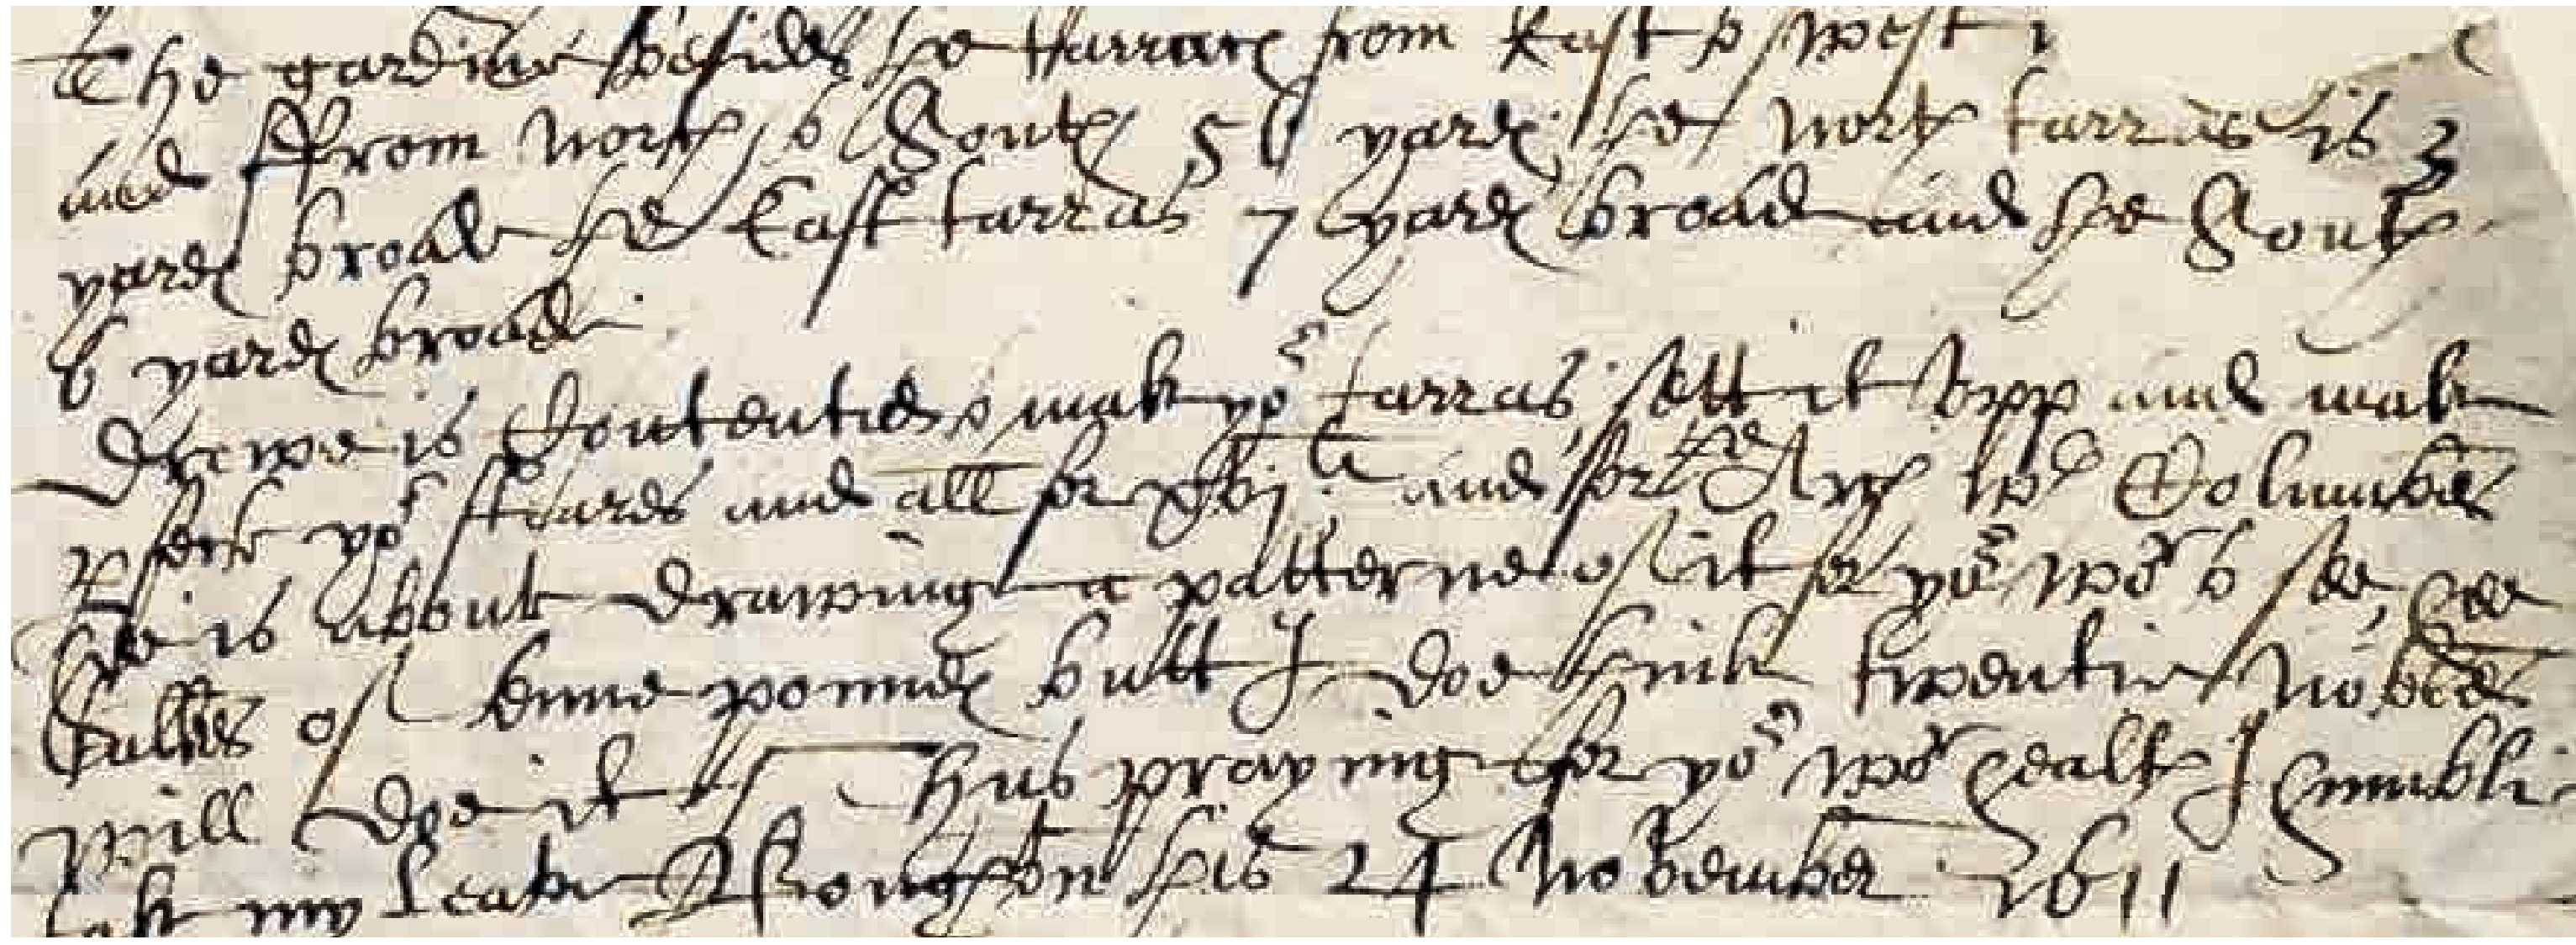 The gardine besides the tarrace from East to West
and from North to South 56 yardes the North tarras is 3
yardes broade the East tarras 7 yardes broad and the South
6 yardes broade
Drewe is Contented to make yor tarras sett it vpp and make
yor steares and all for xvj li and for the Arch wth Columbes
he is about drawing a patterne of it for yor wor to see hee
talkes of tenne poundes butt I doe think twentie nobles
will doe it Thus praying for yor wor health I humbli
take my leave Wroughton this 24 November 1611